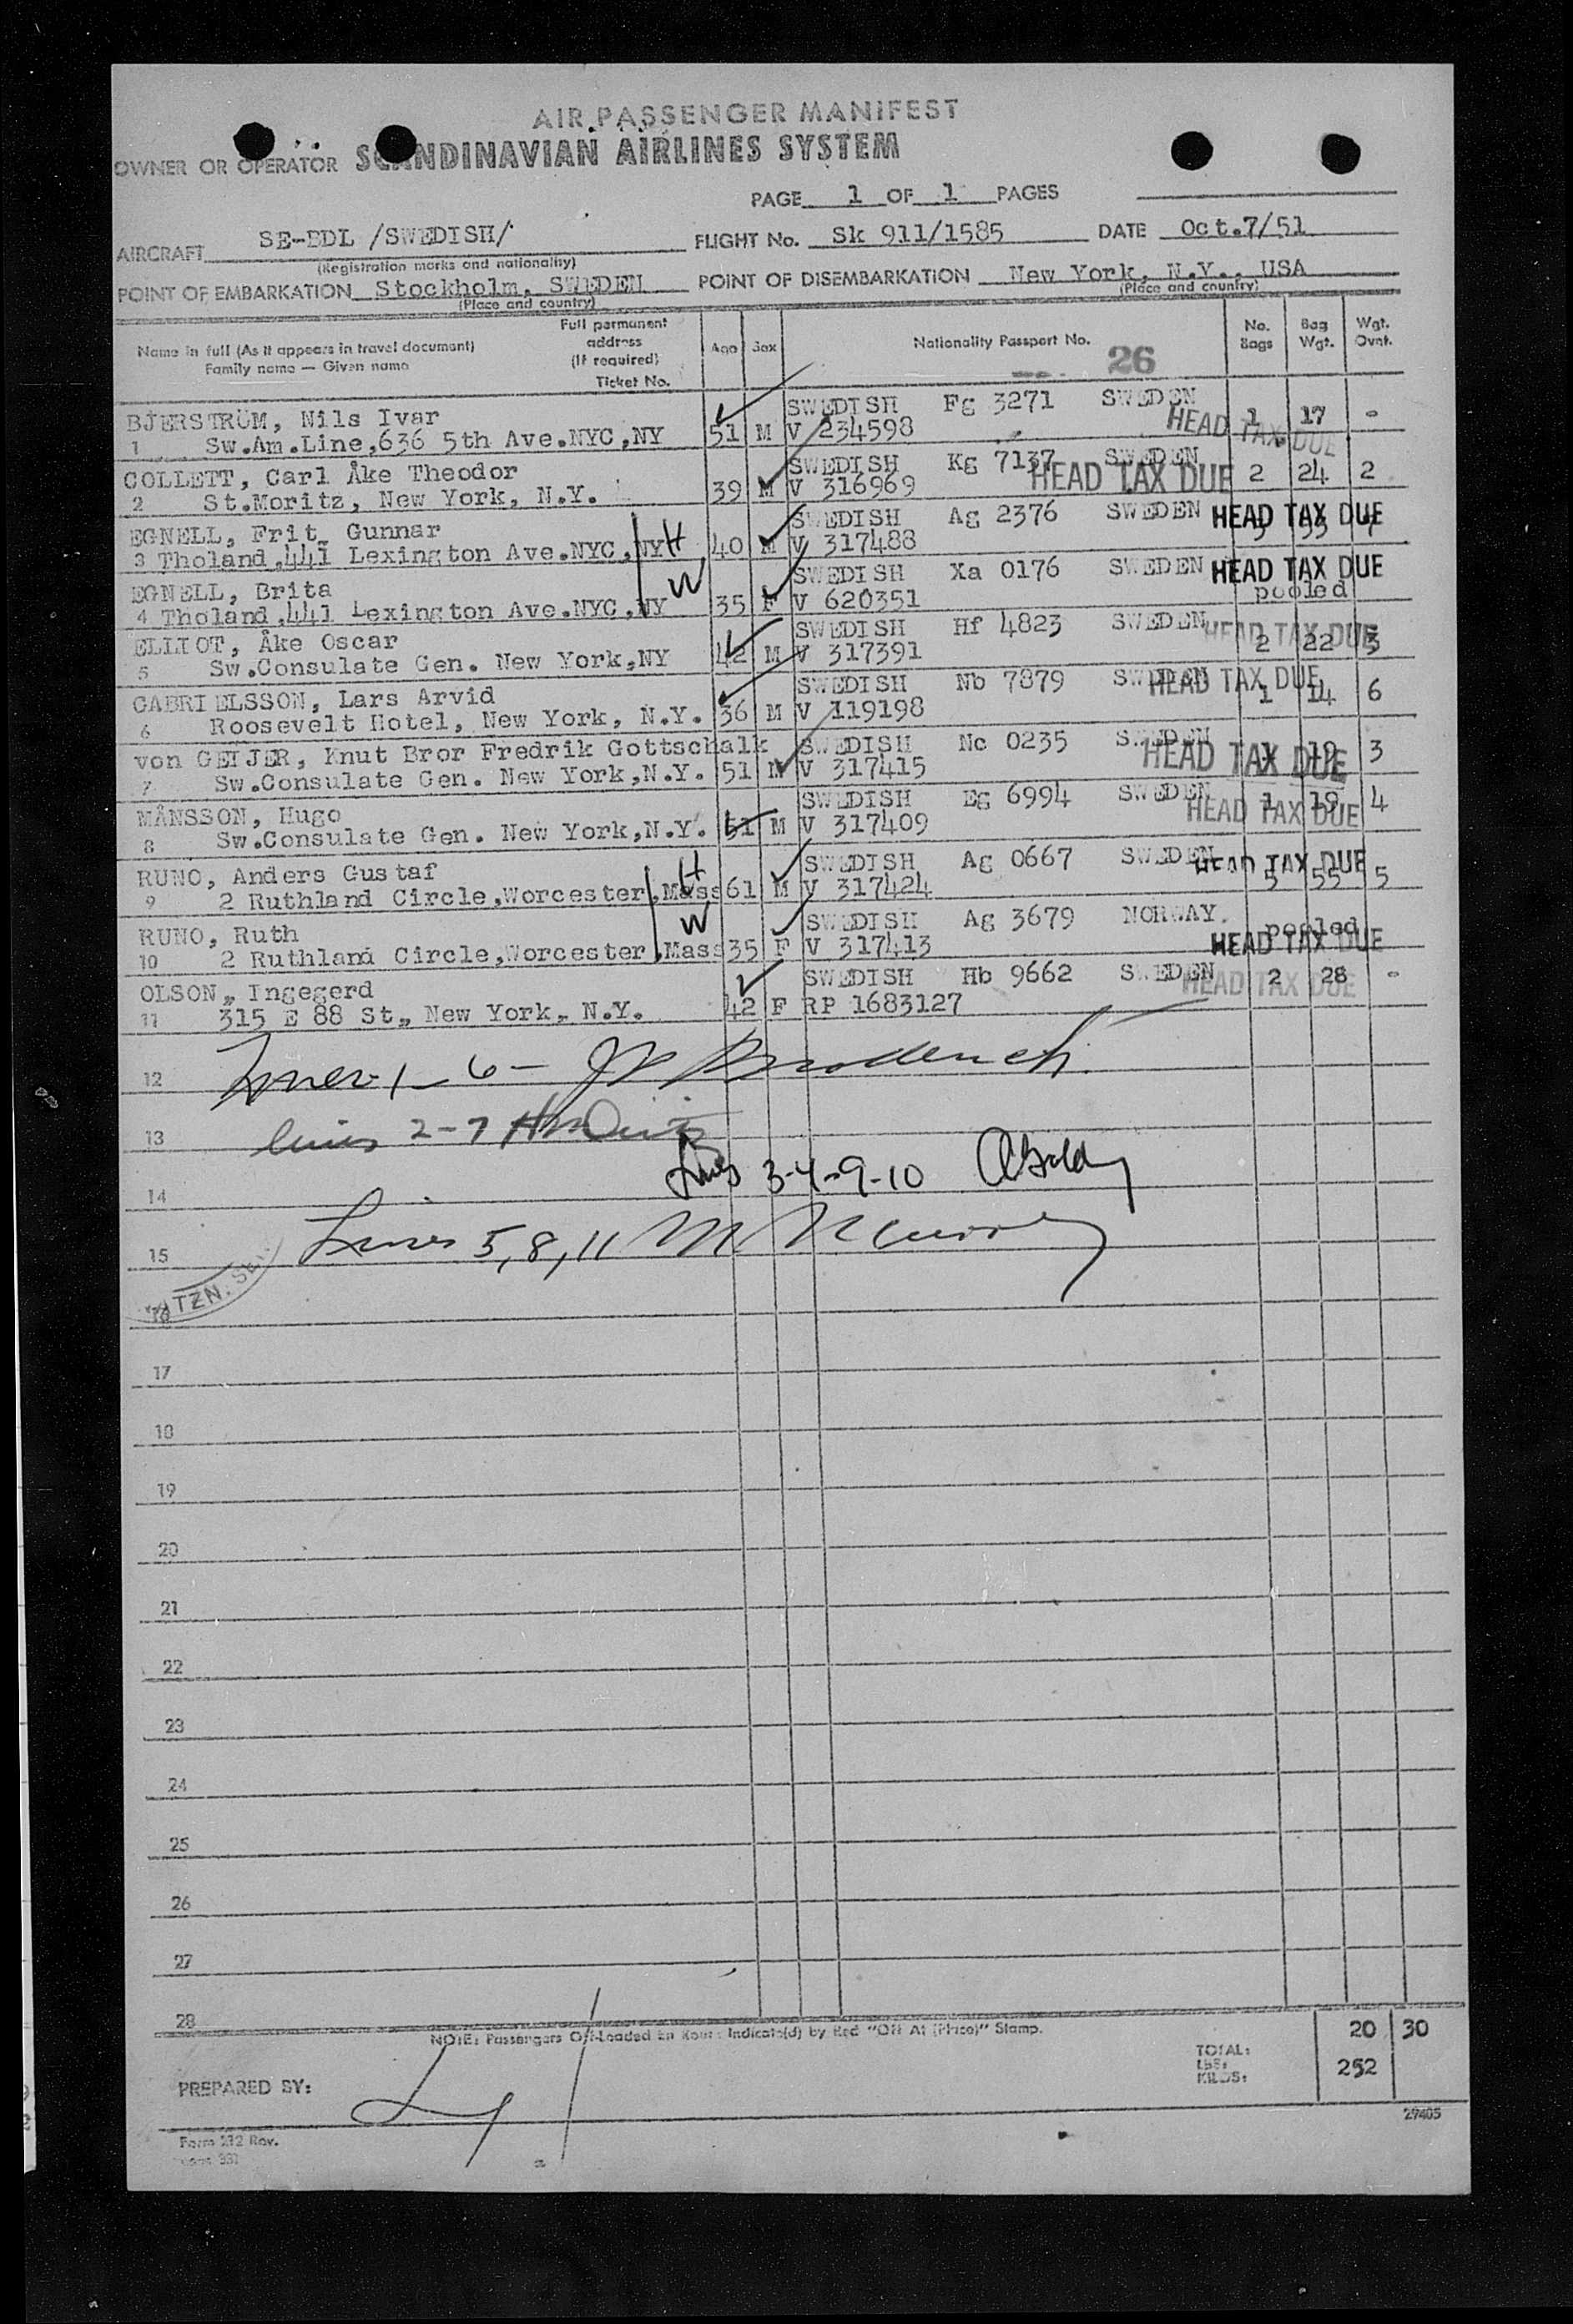 AIR PASSENGER MANIFEST
OWNER OR OPERATOR SCANDINAVIAN AIRLINES SYSTEM
PAGE 1 OF 1 PAGES
AIRCRAFT SE-BDL /SWEDISH/ FLIGHT No. Sk 911/1585 DATE Oct.7/51
(Registration marks and nationality)
POINT OF EMBARKATION Stockholm, SWEDEN POINT OF DISEMBARKATION New York, N.Y., USA
(Place and country) (Place and country)
Name in full (As it appears in travel document) Family name — Given name Full permanent address (If required) Ticket No. Age Sex Nationality Passport No. No. Bags Bag Wgt. Wgt. Ovnt.
26
BJERSTRÖM, Nils Ivar SWEDISH Fg 3271 SWEDEN HEAD TAX DUE 1 17 -
1 Sw.Am.Line,636 5th Ave.NYC,NY 51 M V 234598
COLLETT, Carl Åke Theodor SWEDISH Kg 7137 SWEDEN HEAD TAX DUE 2 24 2
2 St.Moritz, New York, N.Y. 39 M V 316969
EGNELL, Frit, Gunnar SWEDISH Ag 2376 SWEDEN HEAD TAX DUE
3 Tholand,441 Lexington Ave.NYC,NY H 40 M V 317488
EGNELL, Brita W SWEDISH Xa 0176 SWEDEN HEAD TAX DUE pooled
4 Tholand,441 Lexington Ave.NYC,NY 35 F V 620351
ELLIOT, Åke Oscar SWEDISH Hf 4823 SWEDEN HEAD TAX DUE 2 22 3
5 Sw.Consulate Gen. New York,NY 42 M V 317391
GABRIELSSON, Lars Arvid SWEDISH Nb 7879 SWEDEN HEAD TAX DUE 1 14 6
6 Roosevelt Hotel, New York, N.Y. 36 M V 119198
von GEIJER, Knut Bror Fredrik Gottschalk SWEDISH Nc 0235 SWEDEN HEAD TAX DUE 1 19 3
7 Sw.Consulate Gen. New York,N.Y. 51 M V 317415
MÅNSSON, Hugo SWEDISH Eg 6994 SWEDEN HEAD TAX DUE 1 19 4
8 Sw.Consulate Gen. New York,N.Y. 51 M V 317409
RUNO, Anders Gustaf H SWEDISH Ag 0667 SWEDEN HEAD TAX DUE 5 55 5
9 2 Ruthland Circle,Worcester,Mass 61 M V 317424
RUNO, Ruth W SWEDISH Ag 3679 NORWAY. pooled HEAD TAX DUE
10 2 Ruthland Circle,Worcester,Mass 35 F V 317413
OLSON, Ingegerd SWEDISH Hb 9662 SWEDEN HEAD TAX DUE 2 28 -
11 315 E 88 St., New York, N.Y. 42 F RP 1683127
12 Lines 1-6-
13 lines 2-7
Lines 3-4-9-10
14
15 Lines 5,8,11
16
17
18
19
20
21
22
23
24
25
26
27
28
NOTE: Passengers Off-Loaded En Route Indicate(d) by Red "Off At (Place)" Stamp.
20 30
TOTAL:
LBS:
KILOS: 252
PREPARED BY:
27405
Form 212 Rev.